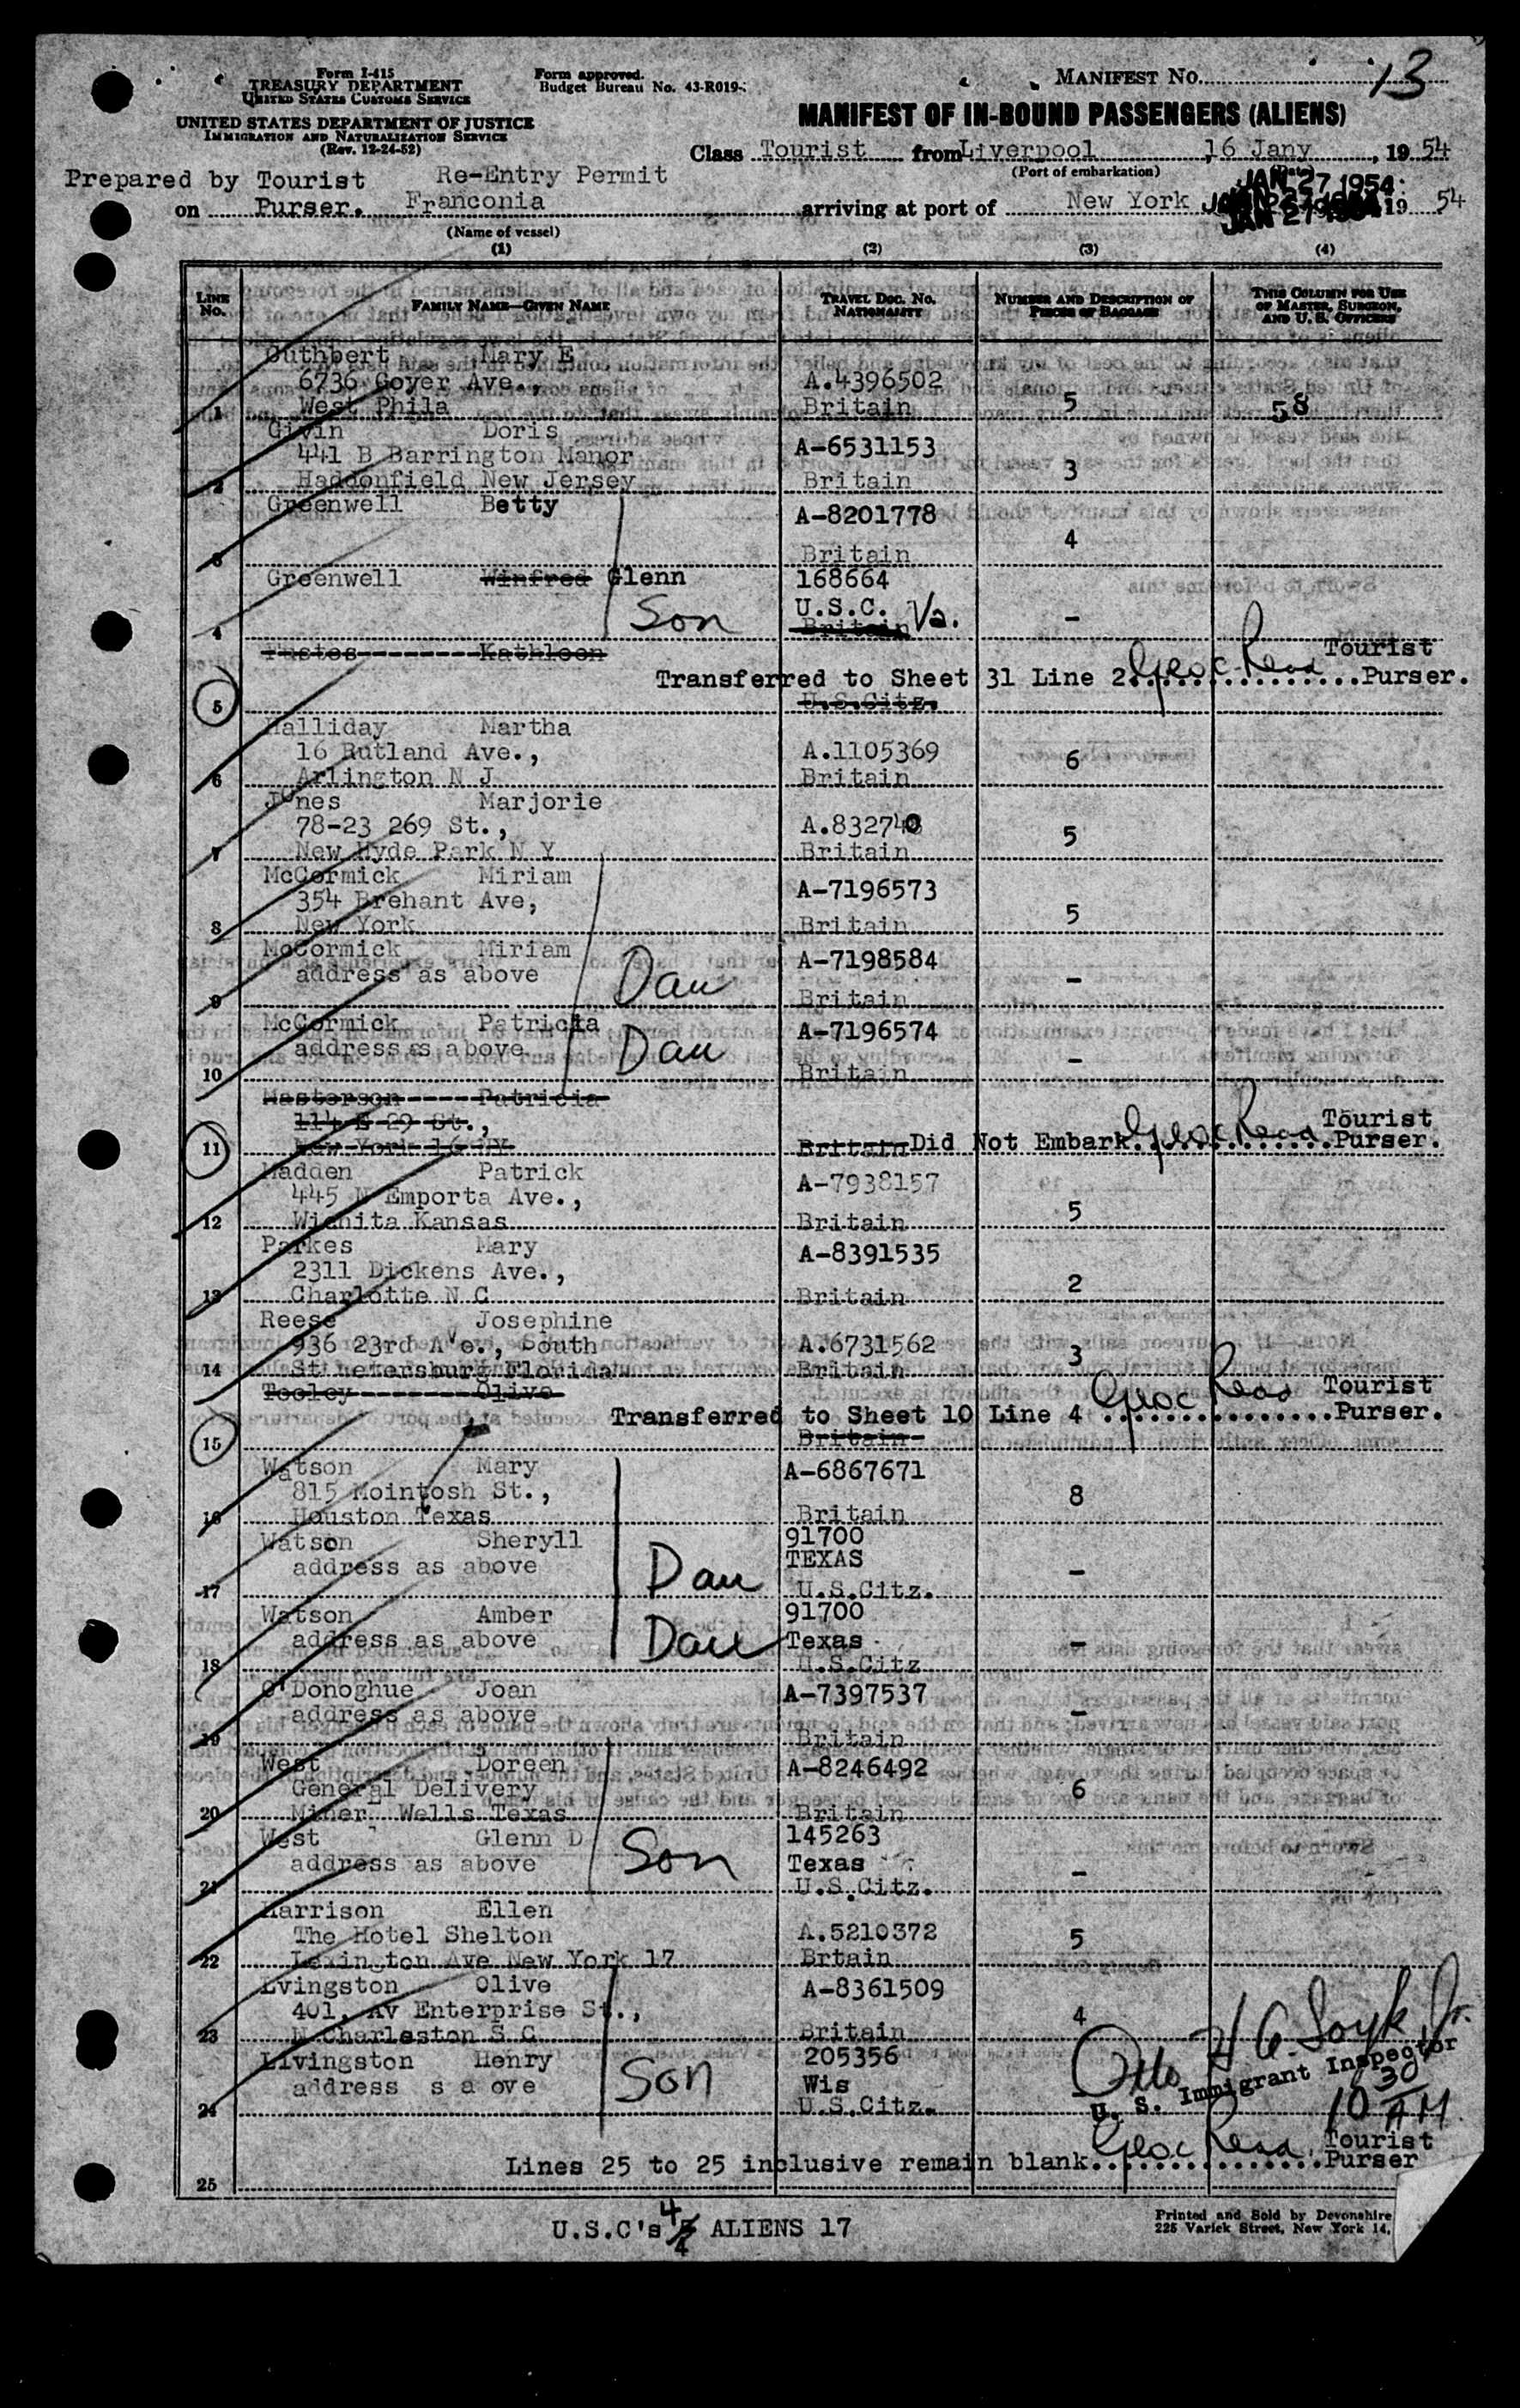 Form I-415
TREASURY DEPARTMENT
UNITED STATES CUSTOMS SERVICE
UNITED STATES DEPARTMENT OF JUSTICE
IMMIGRATION AND NATURALIZATION SERVICE
(Rev. 12-24-52)
Form approved.
Budget Bureau No. 43-R019-
MANIFEST NO. 13
MANIFEST OF IN-BOUND PASSENGERS (ALIENS)
Class Tourist from Liverpool, 16 Jany, 19 54
(Port of embarkation)
Prepared by Tourist Re-Entry Permit
JAN 27 1954
on Purser. Franconia arriving at port of New York 19 54
JAN 27 1954
(Name of vessel)
(1) (2) (3) (4)
LINE NO.
FAMILY NAME—GIVEN NAME
TRAVEL DOC. NO. NATIONALITY
NUMBER AND DESCRIPTION OF PIECES OF BAGGAGE
THIS COLUMN FOR USE OF MASTER, SURGEON, AND U. S. OFFICERS
Cuthbert Mary E
6736 Goyer Ave., A.4396502
1 West Phila Britain 5 58
Givin Doris
441 B Barrington Manor A-6531153
2 Haddonfield New Jersey Britain 3
Greenwell Betty A-8201778
3 Britain 4
Greenwell Winfred Glenn 168664
Son U.S.C. Va.
4 Britain -
Kathleen Tourist
Transferred to Sheet 31 Line 2 Geoc Read Purser.
5 U.S.Citz.
Halliday Martha
16 Rutland Ave., A.1105369
6 Arlington N J Britain 6
Jones Marjorie
78-23 269 St., A.832740
7 New Hyde Park N Y Britain 5
McCormick Miriam
354 Brehant Ave, A-7196573
8 New York Britain 5
McCormick Miriam
address as above Dau A-7198584
9 Britain -
McCormick Patricia
address as above Dau A-7196574
10 Britain -
Masterson Patricia
114 E 29 St., Tourist
11 New York 16 NY Britain Did Not Embark. Geoc Read Purser.
Madden Patrick
445 N Emporta Ave., A-7938157
12 Wichita Kansas Britain 5
Parkes Mary A-8391535
2311 Dickens Ave.,
13 Charlotte N C Britain 2
Reese Josephine
936 23rd Ave., South A.6731562
14 St Petersburg Florida Britain 3
Tooley Olive Tourist
Transferred to Sheet 10 Line 4 Geoc Read Purser.
15 Britain
Watson Mary A-6867671
815 Mointosh St.,
16 Houston Texas Britain 8
Watson Sheryll 91700
address as above Dau TEXAS
17 U.S.Citz. -
Watson Amber 91700
address as above Dau Texas
18 U.S.Citz -
O'Donoghue Joan A-7397537
address as above
19 Britain -
West Doreen A-8246492
General Delivery
20 Miner Wells Texas Britain 6
West Glenn D 145263
address as above Son Texas
21 U.S.Citz. -
Harrison Ellen
The Hotel Shelton A.5210372
22 Lexington Ave New York 17 Brtain 5
Lvingston Olive A-8361509
401, Av Enterprise St.,
23 N Charleston S C Britain 4
Livingston Henry 205356
address s a ove Son Wis
24 U.S.Citz. -
U. S. Immigrant Inspector
10 30 AM
Tourist
25 Lines 25 to 25 inclusive remain blank. Geoc Read Purser
U.S.C's 4 ALIENS 17
Printed and Sold by Devonshire
225 Varick Street, New York 14,